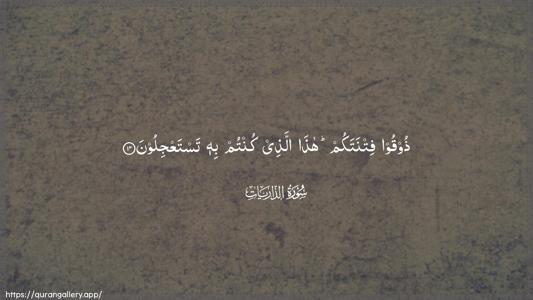 ذُوۡقُوۡا فِتۡنَتَكُمۡ ؕ هٰذَا الَّذِىۡ كُنۡتُمۡ بِهٖ تَسۡتَعۡجِلُوۡنَ‏ ﴿۱۴﴾
سُوۡرَةُ الذّٰارِيَات
https://qurangallery.app/